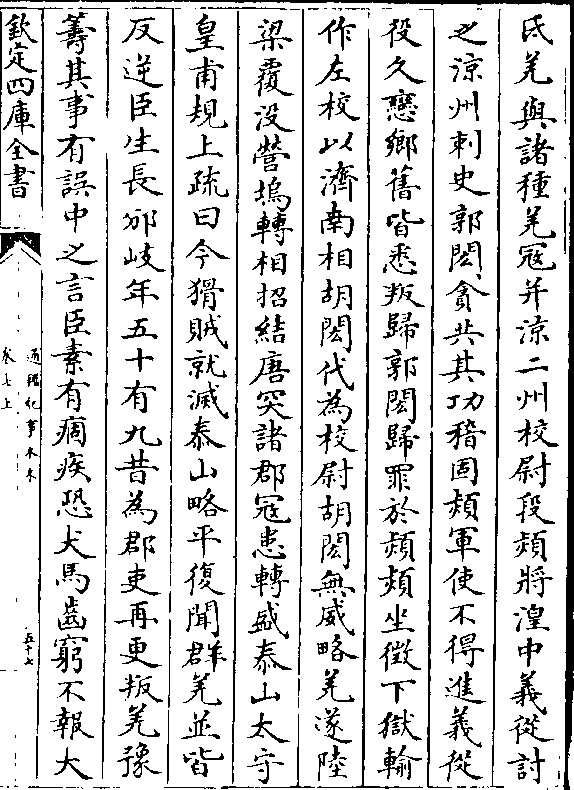 氐羌與諸種羌寇并涼二州校尉段熲將湟中義從討
之涼州刺史郭閎貪共其功稽固熲軍使不得進義從
役久戀鄉舊皆悉叛歸郭閎歸罪於熲熲坐徵下獄輸
作左校以濟南相胡閎代為校尉胡閎無威略羌遂陸
梁覆没營塢轉相招結唐突諸郡寇患轉盛泰山太守
皇甫規上疏曰今猾賊就滅泰山略平復聞群羌並皆
反逆臣生長邠岐年五十有九昔為郡吏再更叛羌豫
籌其事有誤中之言臣素有痼疾恐犬馬齒窮不報大
欽定四庫全書
通鑑紀事本末
卷七上
五十七